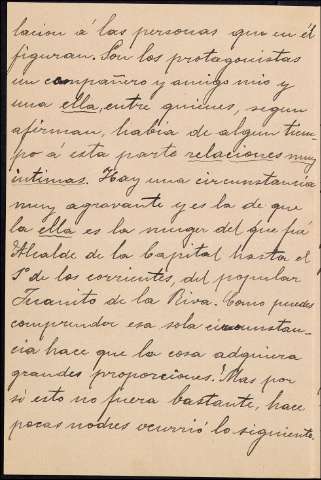 lacion á las personas que en él
figuran. Son los protagonistas
un compañero y amigo mio y
una ella, entre quienes, segun
afirman, habia de algun tiem-
po á esta parte relaciones muy
intimas. Hay una circunstancia
muy agravante y es la de que
la ella es la muger del que fué
Alcalde de la Capital hasta el
1º de los corrientes, del popular
Juanito de la Riva. Como puedes
comprender esa sola circunstan-
cia hace que la cosa adquiera
grandes proporciones. Mas por
si esto no fuera bastante, hace
pocas noches ocurrió lo siguiente.